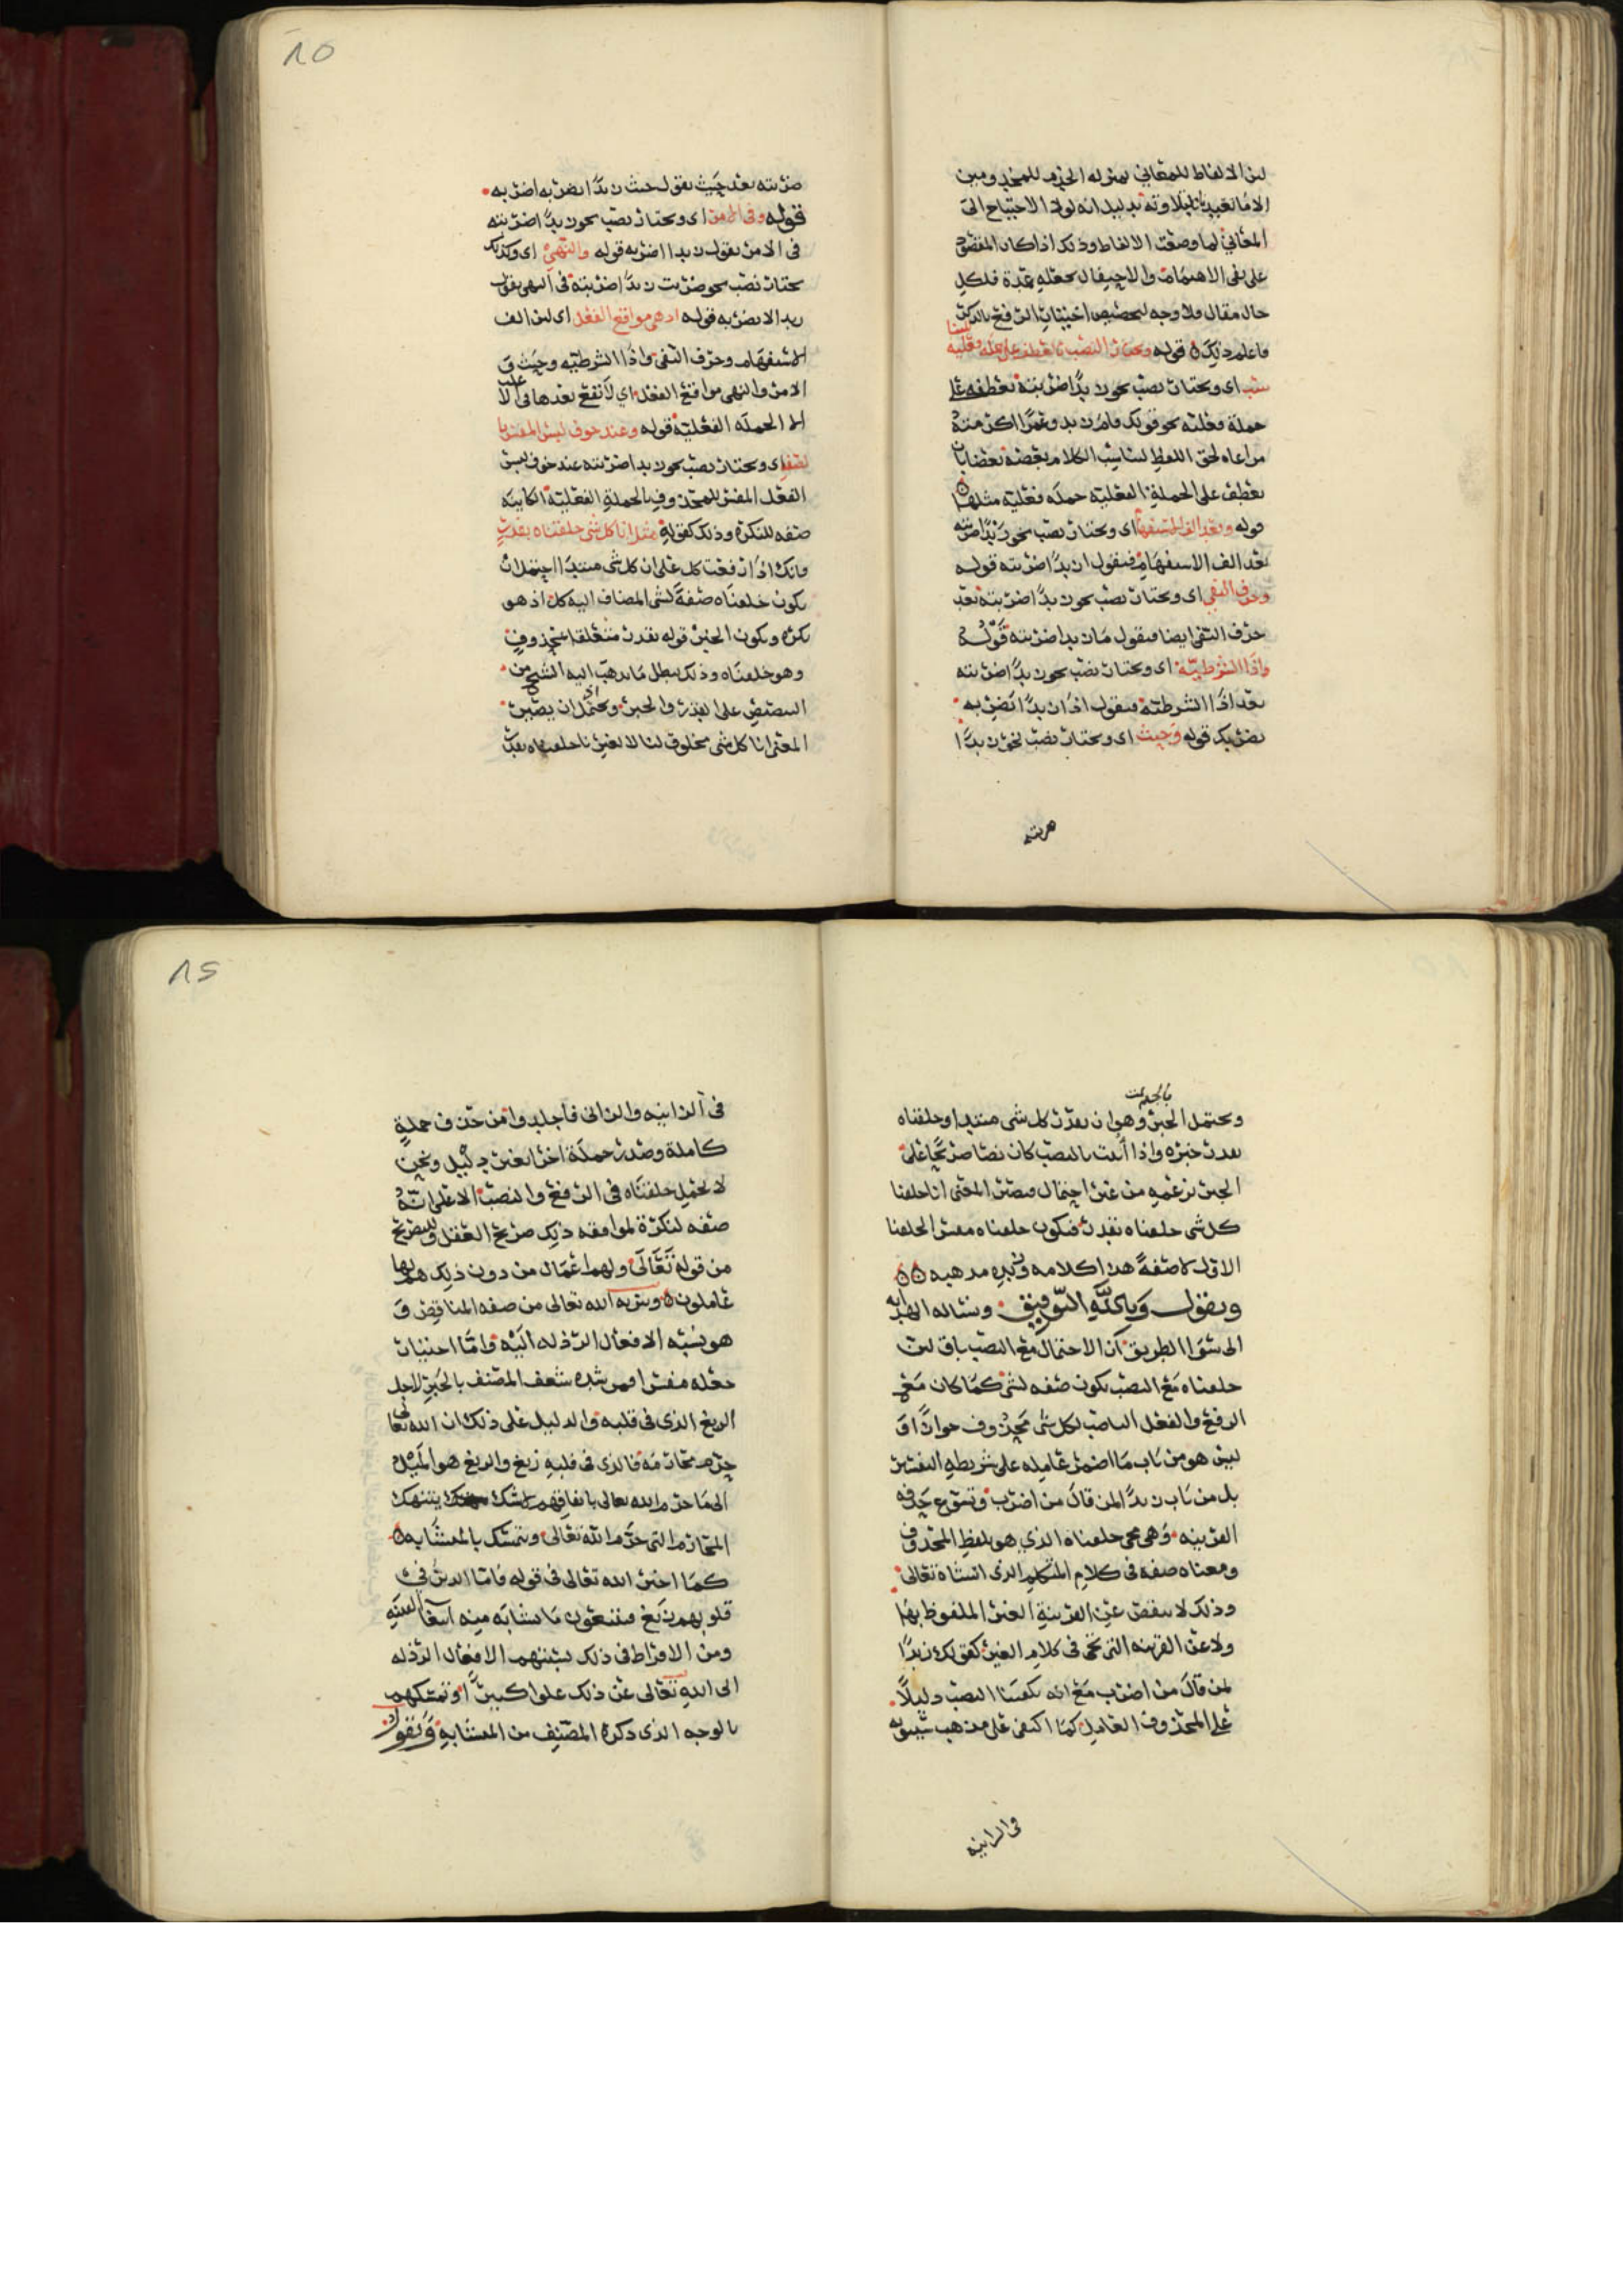 لان الالفاظ للمعاني بمنزله الخدم للمخدومين
المعاني لما وضعت الالفاظ وذلك اذا كان المقصود
حال مقال ولا وجه لتخصيص اختيار الرفع بالذكر
فاعلم ذلك قوله ويختار النصب بالعطف على جمله فعليه
اي ويختار نصب نحو زيدا ضربته بعطفه على
جملة فعلية نحو قولك قام زيد وعمرا اكرمته
مراعاه لحق اللفظ لتناسب الكلام بعضه بعضا بان
تعطف على الجملة الفعلية جمله فعلية مثلها
قوله وبعد الف الاستفهام اي ويختار نصب نحو زيدا ضربته
بعد الف الاستفهام فتقول ا زيدا ضربته قوله
وحرف النفي اي ويختار نصب نحو زيدا ضربته بعد
حرف النفي ايضا فتقول ما زيدا ضربته قوله
واذا الشرطية اي ويختار نصب نحو زيدا ضربته
بعد اذا الشرطية فتقول اذا زيدا تضربه
يضربك قوله وحيث اي ويختار نصب نحو زيدا
ضربته
٨٥
ضربته بعد حيث تقول حيث زيدا تضربه اضربه
قوله وفي الامر اي ويختار نصب نحو زيدا ضربته
في الامر تقول زيدا اضربه قوله والنهي اي وكذلك
يختار نصب نحو ضربت زيدا ضربته في النهي تقول
زيدا لا تضربه قوله اذ هي مواقع الفعل اي لان الف
الاستفهام وحرف النفي واذا الشرطيه وحيث و
الامر والنهي مواقع الفعل اي لا تقع بعدها في الاغلب
الا الجملة الفعلية قوله وعند خوف لبس المفسر با
لصفه اي ويختار نصب نحو زيدا ضربته عند خوف لبس
الفعل المفسر للمحذوف بالجملة الفعلية الكاينه
صفه للنكرة وذلك كقوله مثل انا كل شي خلقناه بقدر
فانك اذا رفعت كل على ان كل شي مبتدا احتمل ان
يكون خلقناه صفة لشي المضاف اليه كل اذ هو
نكره ويكون الخبر قوله بقدر متعلقا بمحذوف
وهو خلقناه وذلك يبطل ما يذهب اليه الشيخ من
التنصيص على القدر والجبر ويحتمل ان يصير
المعنى انا كل شي مخلوق لنا لا لغيرنا خلقناه بقدر
ويحتمل الجبر وهو ان يقدر كل شي مبتدا وخلقناه
بقدر خبره واذا اتيت بالنصب كان نصا صريحا على
الجبر بزعمه من غير احتمال فيصير المعنى انا خلقنا
كل شي خلقناه بقدر فيكون خلقناه مفسر الخلقنا
الاول لا صفة هذا كلامه وتقرير مذهبه
ونقول وبالله التوفيق ونساله الهدايه
الى سوا الطريق ان الاحتمال مع النصب باق لان
خلقناه مع النصب يكون صفه لشي كما كان مع
الرفع والفعل الناصب لكل شي محذوف جوازا و
ليس هو من باب ما اضمر عامله على شريطه التفسير
بل من باب زيدا لمن قال من اضرب وتسوغ حذفه
القرينه وهي مجي خلقناه الذي هو بلفظ المحذوف
ومعناه صفه في كلام المتكلم الذي انشاه تعالى
وذلك لا ينقص عن القرينة الغير الملفوظ بها
ولا عن القرينه التي تجي في كلام الغير كقولك زيدا
لمن قال من اضرب مع انه يكفينا النصب دليلا
على المحذوف العامل كما اكتفى على مذهب سيبويه
في الزانيه
٨٦
في الزانيه والزاني فاجلدوا من حذف جملة
كاملة وصدر جملة اخرى بغير دليل ونحن
لا نجعل خلقناه في الرفع والنصب الا على انه
صفه لنكرة لموافقه ذلك صريح العقل وللتصريح
من قوله تعالى ولهم اعمال من دون ذلك هم لها
عاملون وتنزيه الله تعالى من صفه المناقص و
هو نسبه الافعال الرذله اليه واما اختيار
جعله مفسرا فمن شده شعف المصنف بالجبر لاجل
الزيغ الذي في قلبه والدليل على ذلك ان الله تعالى
حرم محارمه فالذي في قلبه زيغ والزيغ هو الميل
الى ما حرم الله تعالى باتفاقهم لا شك ينتهك
المحارم التي حرم الله تعالى ويتمسك بالمتشابه
كما اخبر الله تعالى في قوله فاما الذين في
قلوبهم زيغ فيتبعون ما تشابه منه ابتغا الفتنه
ومن الافراط في ذلك نسبتهم الافعال الرذله
الى الله تعالى عن ذلك علوا كبيرا وتمسكهم
بالوجه الذي ذكره المصنف من المتشابه ونقول